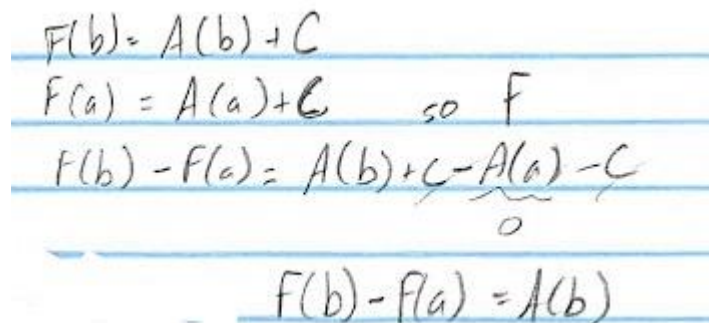 F(b) = A(b) + C
F(a) = A(a) + C so F
F(b) - F(a) = A(b) + C - A(a) - C
0
F(b) - F(a) = A(b)